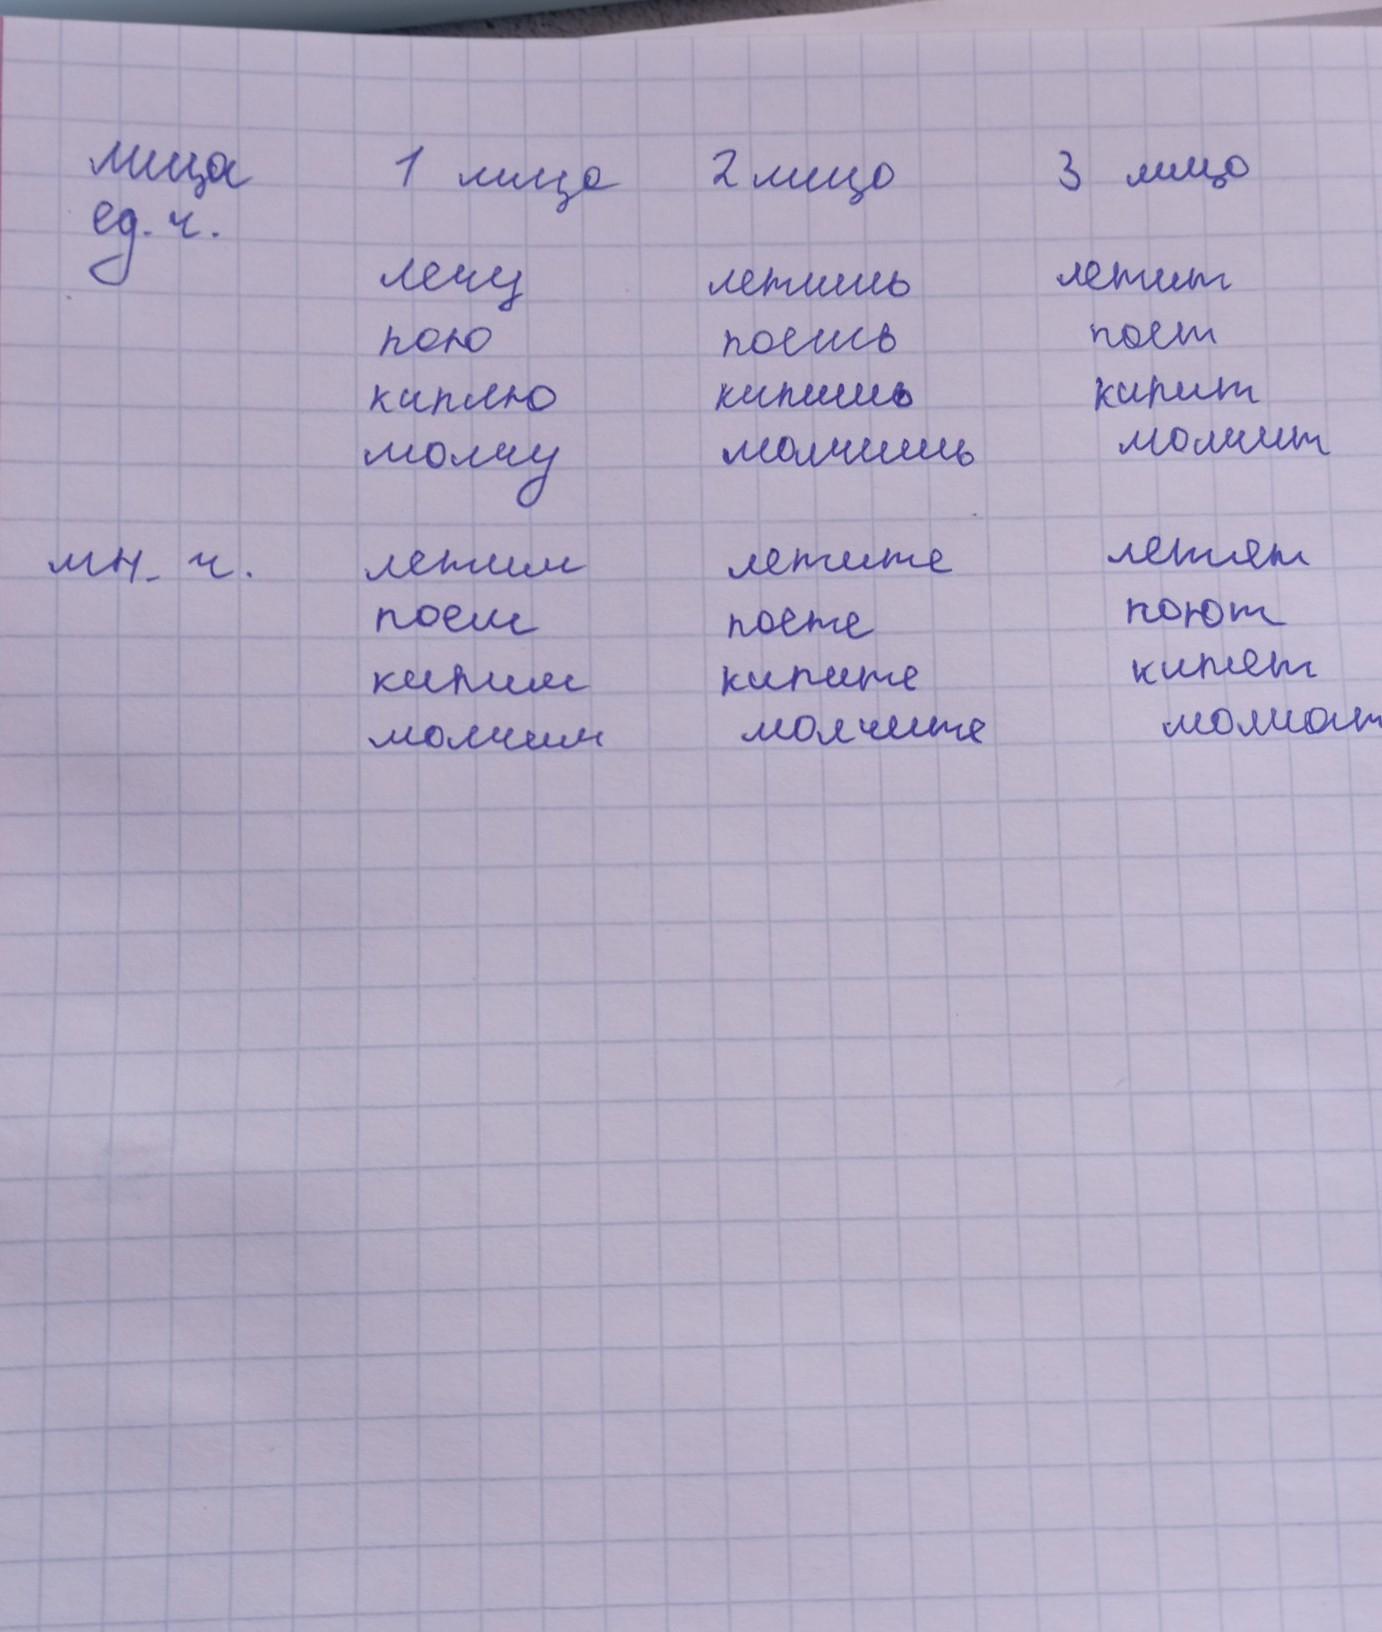 лица 1 лицо 2 лицо 3 лицо
ед. ч.
лечу летишь летит
пою поешь поет
киплю кипишь кипит
молчу молчишь молчит
мн. ч. летим летите летят
поем поете поют
кипим кипите кипят
молчим молчите молчат